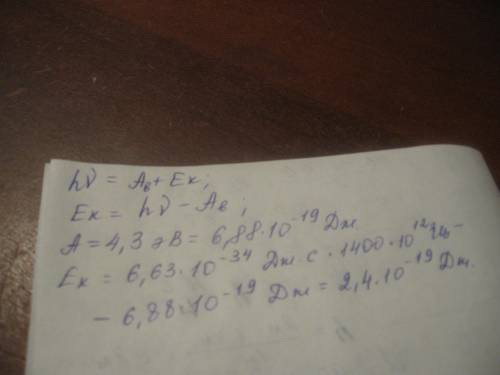 hν = Aв + Eк;
Eк = hν − Aв;
A = 4,3 эВ = 6,88·10⁻¹⁹ Дж.
Eк = 6,63·10⁻³⁴ Дж·с · 1400·10¹² Гц −
− 6,88·10⁻¹⁹ Дж = 2,4·10⁻¹⁹ Дж.